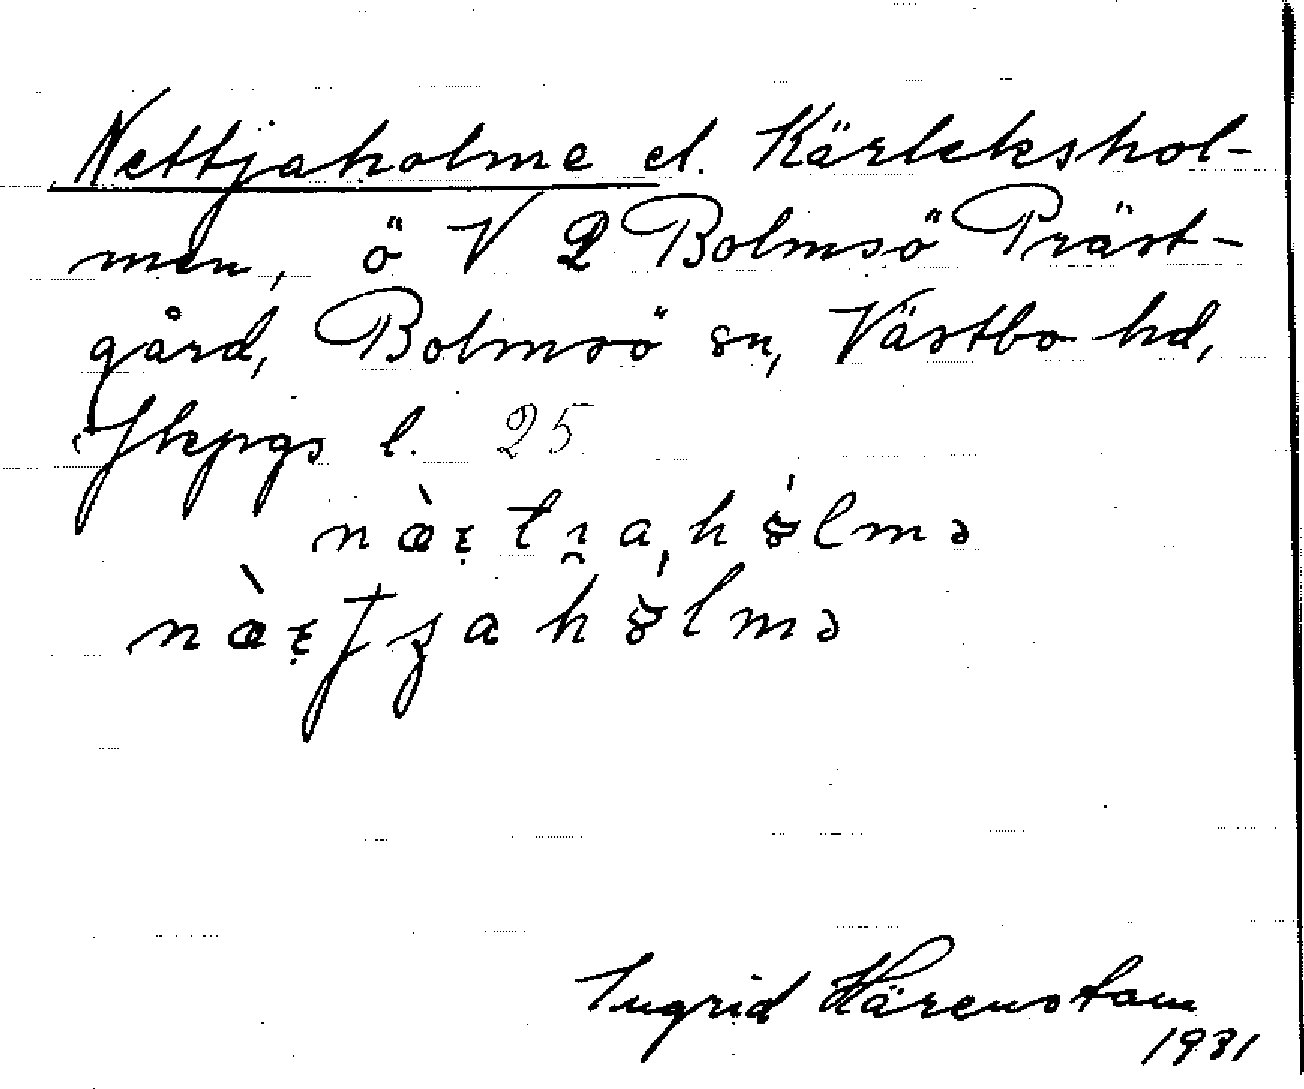 Nettjaholme el. Kärlekshol-
men, ö V 2 Bolmsö Präst-
gård, Bolmsö sn, Västbo hd,
Jkpgs l. 25
Ingrid Härenstam
1931